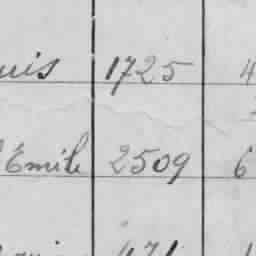 uis 1725 4
Emile 2509 6